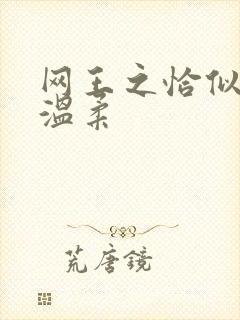 网王之恰似
温柔
荒唐镜